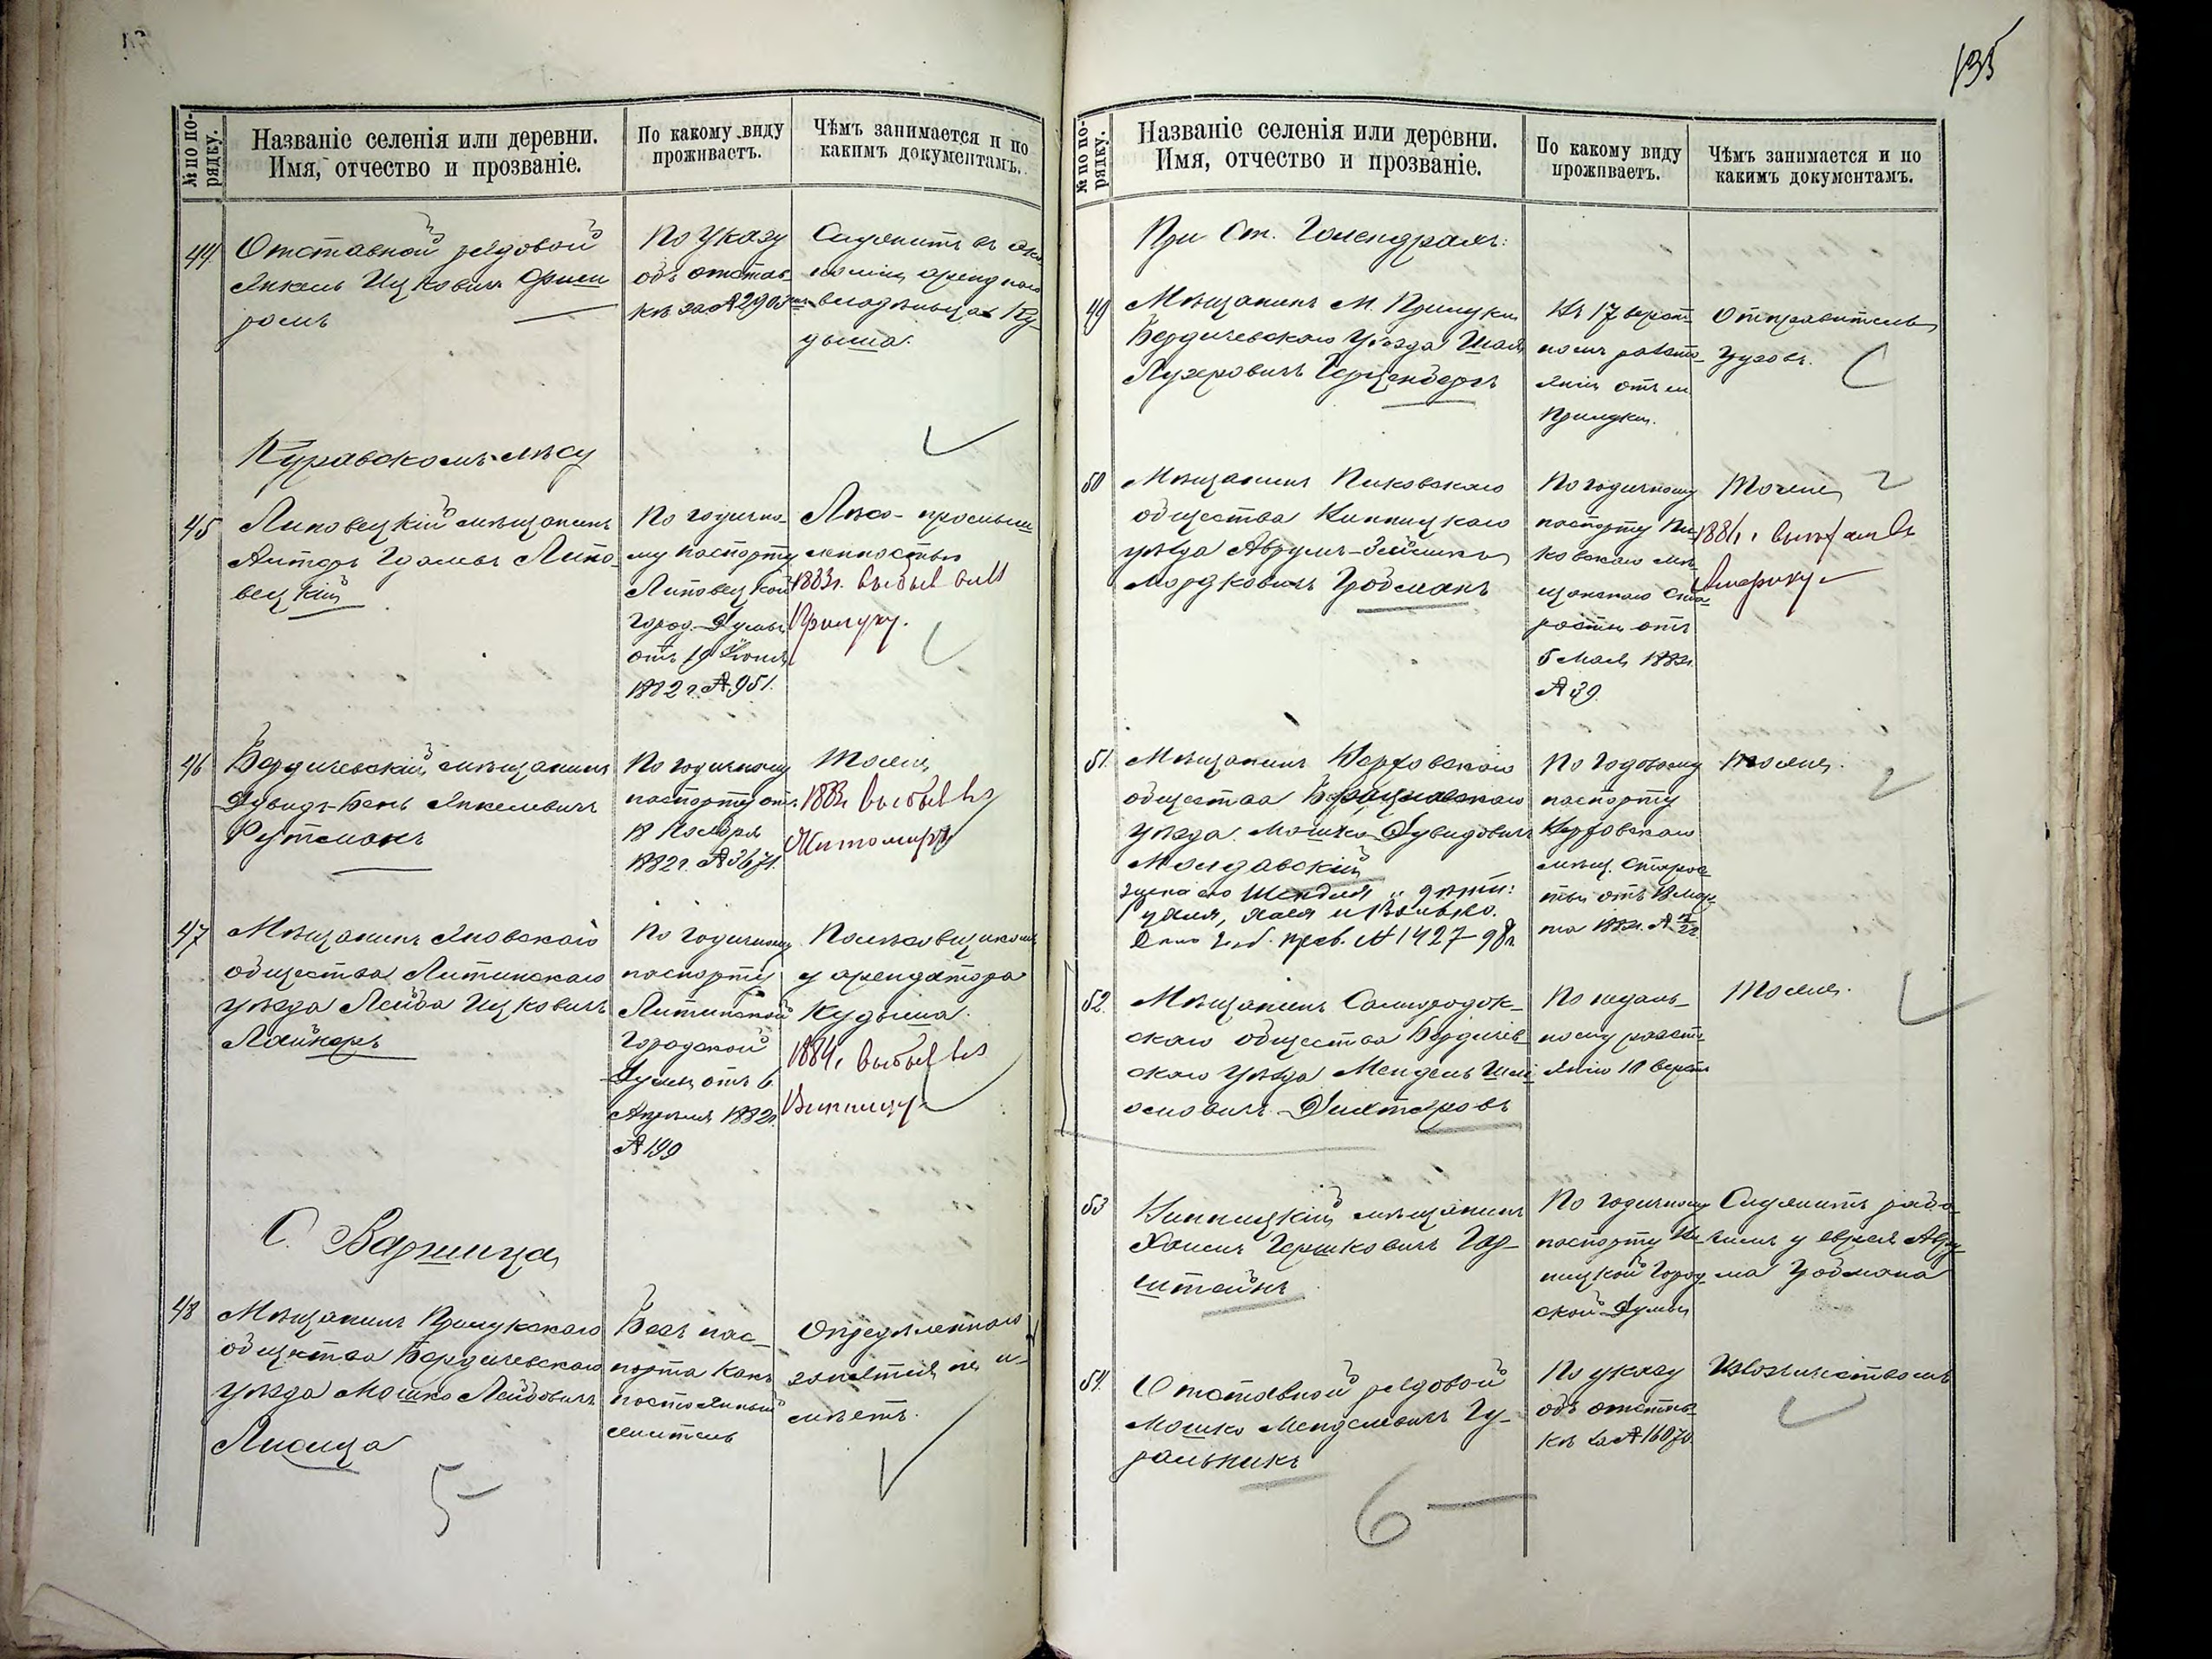 135
№ по по-
рядку.
Названіе селенія или деревни.
Имя, отчество и прозваніе.
По какому виду
проживаетъ.
Чѣмъ занимается и по
какимъ документамъ.
44
Отставной рядовой
Янкель Ицковичъ
По указу
объ отстав
кѣ за №
Служитъ въ эко
номіи аренднаго
владѣльца Ку
дыша.
лѣсу
45
Липовецкій мѣщанинъ
Липо
вецкій
По годично
му паспорту
Липовецкой
Город. Думы
отъ 19 Іюня
1882 г. № 951.
Лѣсо-промыш
ленностью
1883г. выбылъ въ
Прилуку.
46
Бердичевскій мѣщанинъ
Дувидъ-Бень Янкелевичъ
Рутманъ
По годичному
паспорту отъ
18 Ноября
1882 г. № 3671.
Тоже
выбылъ въ
Житомиръ
47
Мѣщанинъ Яновскаго
общества Литинскаго
уѣзда Лейба Ицковичъ
Лайнеръ
По годичному
паспорту
Литинской
Городской
Думы отъ 6
Апрѣля 1882г.
№ 199
у арендатора
Кудыша.
1884г. выбылъ въ
Винницу
С. Варшица
48
Мѣщанинъ Прилукскаго
общества Бердичевскаго
уѣзда Мошко Лейбовичъ
Лисица
Безъ пас
порта какъ
постоянный
житель
Опредѣленнаго
занятія не и
мѣетъ.
5-
№ по по-
рядку.
Названіе селенія или деревни.
Имя, отчество и прозваніе.
По какому виду
проживаетъ.
Чѣмъ занимается и по
какимъ документамъ.
При Ст. Голендрахъ:
49
Мѣщанинъ М. Прилуки
Бердичевскаго уѣзда
Герценбергъ
Въ 17 верст
номъ разсто
яніи отъ м.
Прилуки.
Отправитель
грузовъ.
50
Мѣщанинъ Пиковскаго
общества Винницкаго
уѣзда Аврумъ-Зейликъ
Мордковичъ Гробманъ
По годичному
паспорту Пи
ковскаго мѣ
щанскаго Ста
росты отъ
5 Мая 1882г.
№ 39
Тоже
1881г. въ
Америку
51.
Мѣщанинъ
общества
уѣзда Мошко Дувидовичъ
Молдавскій
жена его Шендля дѣти:
Хаея и Волько.
№ 1427-98г
По годовому
паспорту
мѣщ. Старос
ты отъ 18 Мар
та 1882г. №
Тоже.
52.
Мѣщанинъ Самгородок
скаго общества Бердичев
скаго уѣзда Мендель Шлі
омовичъ Дихтяровъ
разсто
янію 10 верстъ
Тоже.
53
Винницкій мѣщанинъ
Хаимъ Гершковичъ Гор
штейнъ
По годичному
паспорту Ви
ницкой Город
ской Думы
Служитъ рабо
чимъ у еврея Авру
ма Гробмана
54.
Отставной рядовой
Мошко Менделевичъ Гу
ральникъ
По указу
объ отстав
кѣ за № 16070
Извозничествомъ
6-